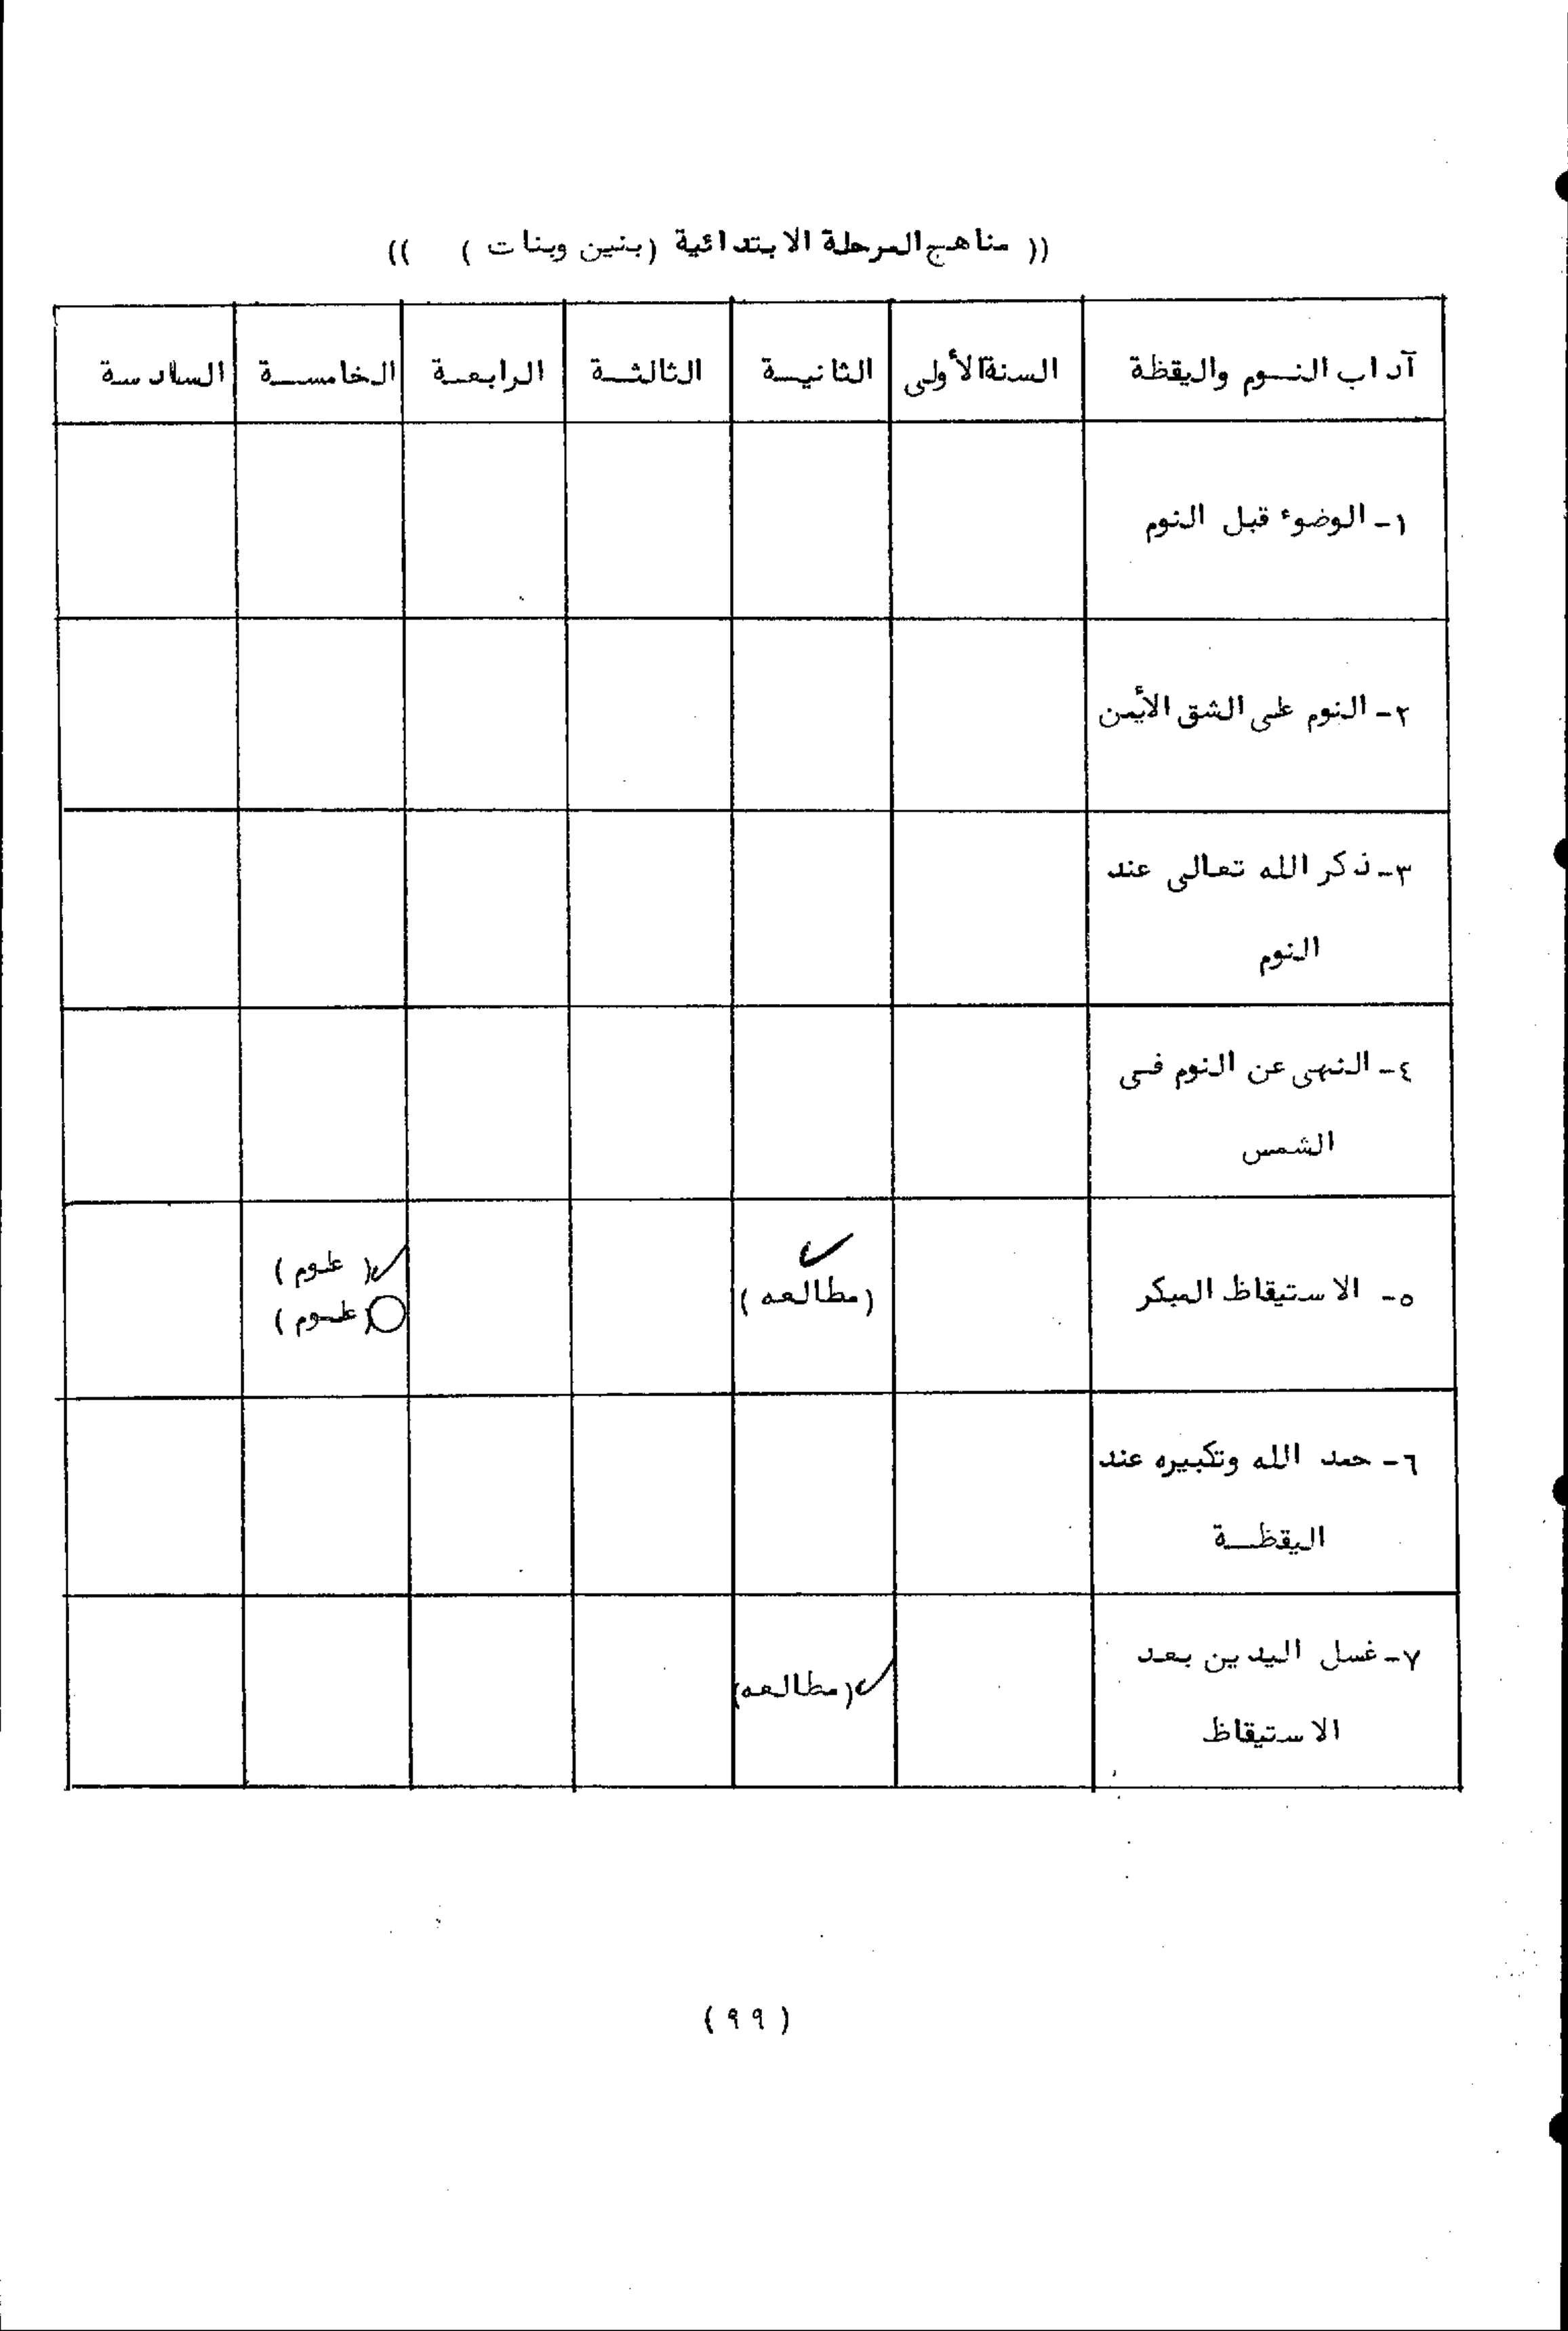 (( مناهج المرحلة الابتدائية (بنين وبنات ) ))
آداب النــوم واليقظة السنة الأولى الثانيــة الثالثــة الرابعــة الخامســة السادسة
١- الوضوء قبل النوم
٢- النوم على الشق الأيمن
٣- ذكر الله تعالى عند
النوم
٤- النهى عن النوم فى
الشمس
٥- الاستيقاظ المبكر ✓ (مطالعه) ✓(علوم)
○(علوم)
٦- حمد الله وتكبيره عند
اليقظــة
٧- غسل اليدين بعد ✓(مطالعه)
الاستيقاظ
(٩٩)